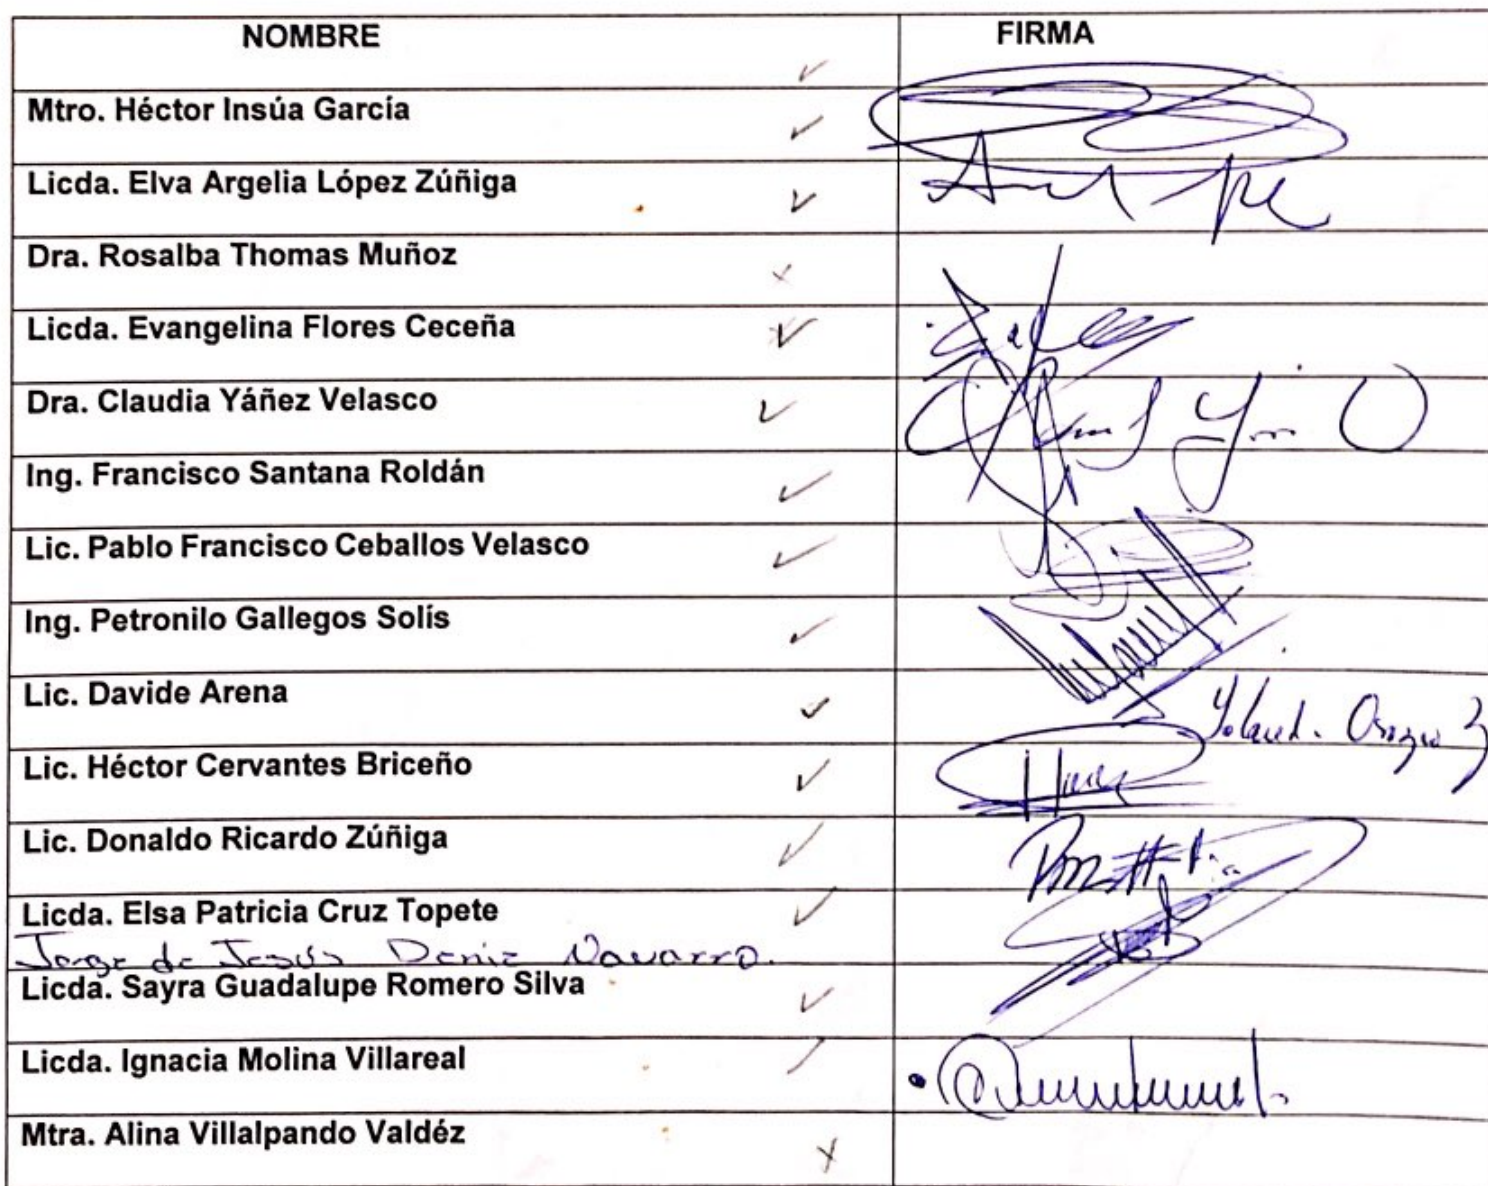 NOMBRE FIRMA
Mtro. Héctor Insúa García
Licda. Elva Argelia López Zúñiga
Dra. Rosalba Thomas Muñoz
Licda. Evangelina Flores Ceceña
Dra. Claudia Yáñez Velasco
Ing. Francisco Santana Roldán
Lic. Pablo Francisco Ceballos Velasco
Ing. Petronilo Gallegos Solís
Lic. Davide Arena
Lic. Héctor Cervantes Briceño
Lic. Donaldo Ricardo Zúñiga
Licda. Elsa Patricia Cruz Topete
Jorge de Jesús Deniz Navarro.
Licda. Sayra Guadalupe Romero Silva
Licda. Ignacia Molina Villareal
Mtra. Alina Villalpando Valdéz